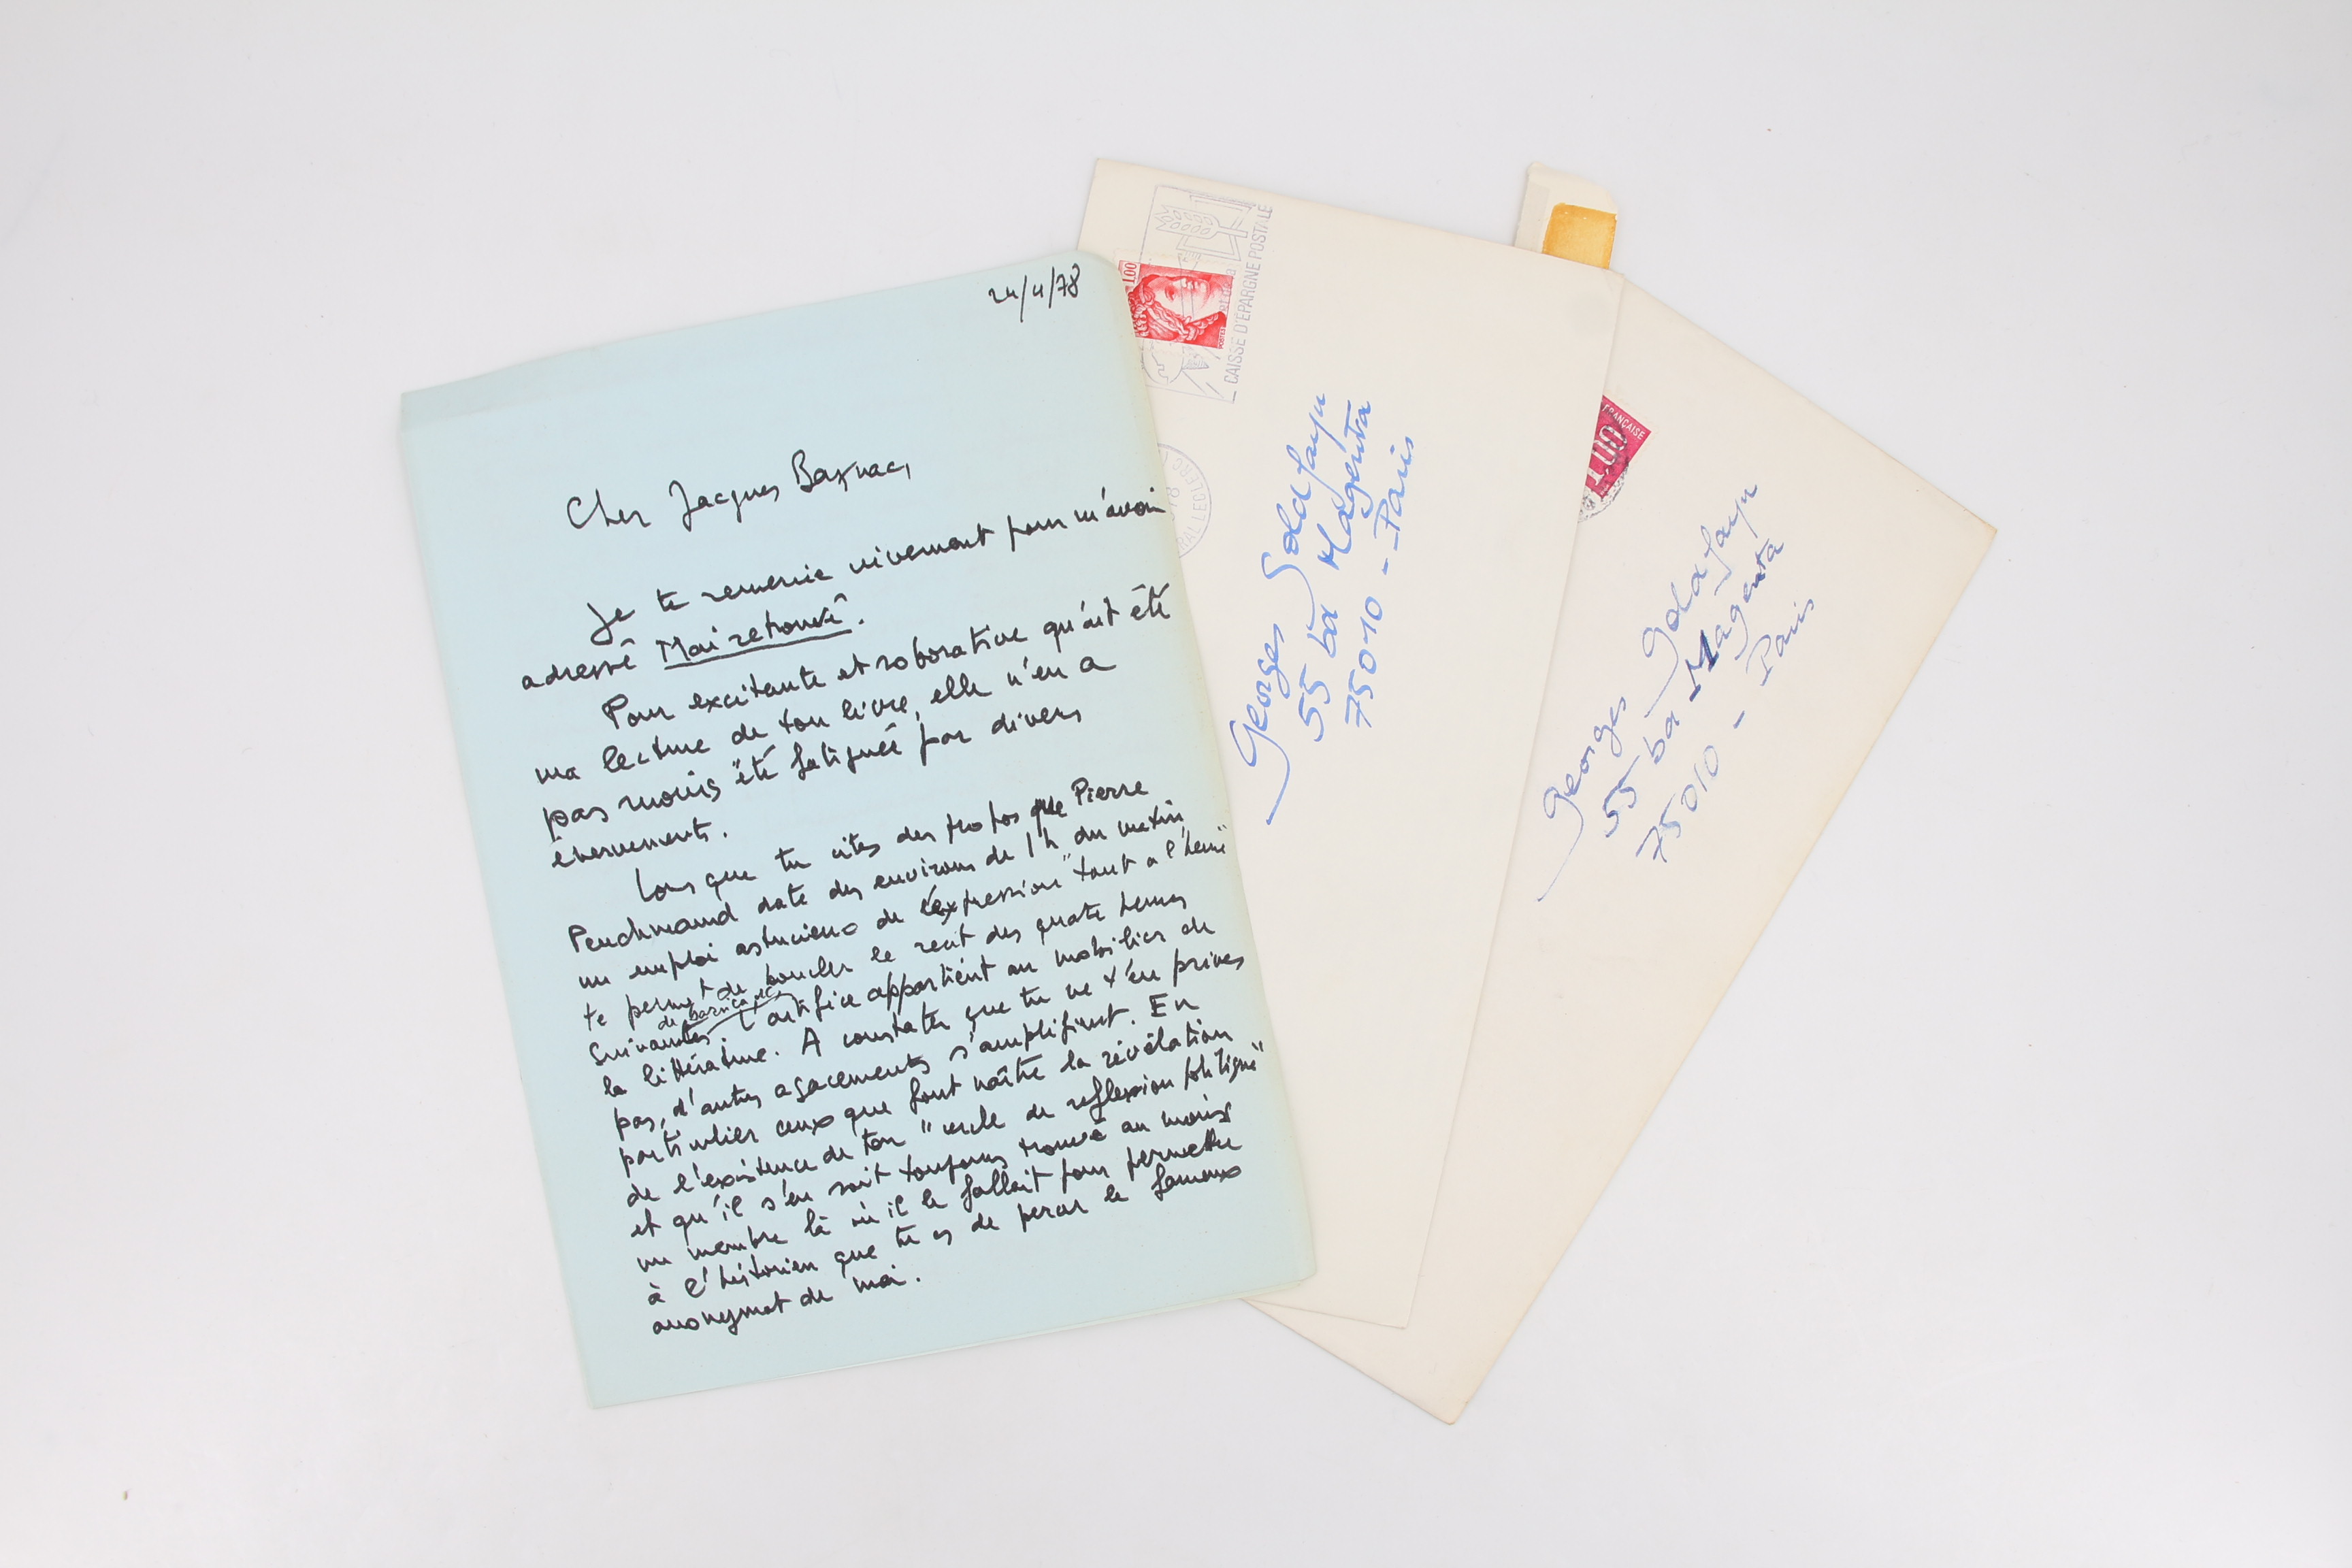 24/4/78
Cher Jacques Baynac,
Je te remercie vivement pour m'avoir
adressé Mai retrouvé.
Pour excitante et roborative qu'ait été
ma lecture de ton livre, elle n'en a
pas moins été fatiguée par divers
énervements.
Lorsque tu cites des propos que Pierre
Peuchmaurd date des environs de 1h du matin,
un emploi astucieux de l'expression "tout à l'heure"
te permet de boucler le récit des quatre heures
de barricades
suivantes. L'artifice appartient au mobilier de
la littérature. A constater que tu ne t'en prives
pas, d'autres agacements s'amplifient. En
particulier ceux que font naître la révélation
de l'existence de ton "cercle de réflexion politique"
et qu'il s'en soit toujours trouvé au moins
un membre là où il le fallait pour permettre
à l'historien que tu es de percer le fameux
anonymat de mai.
1.00
CAISSE D'EPARGNE POSTALE
RAL LECLERC
Georges Goldfayn
55 bd Magenta
75010 - Paris
FRANÇAISE
1.00
Georges Goldfayn
55 bd Magenta
75010 - Paris